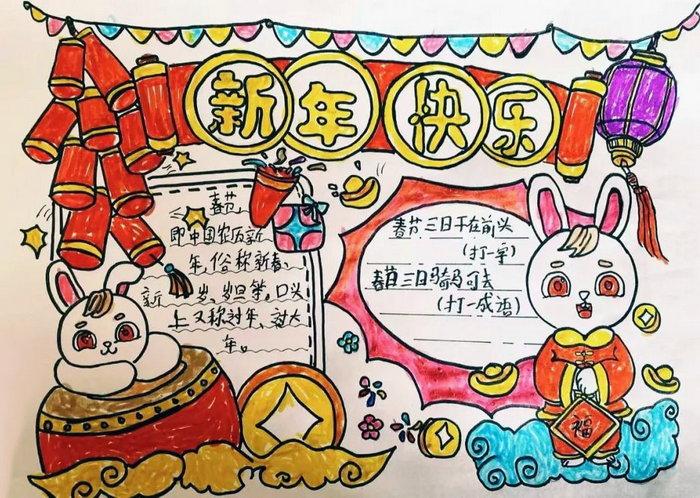 新年快乐
春节
即中国农历新
年,俗称新春、
新 岁、岁旦等,口头
上又称过年、过大
年。
春节三日 在前头
(打一字)
春节三日骑马可去
(打一成语)
福